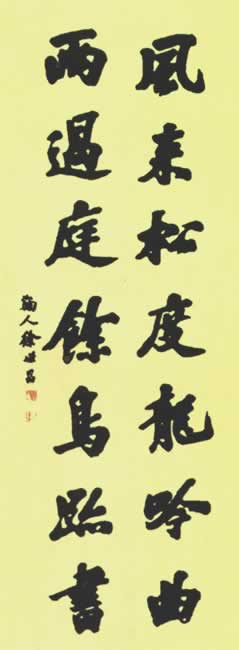 風来松度龍吟曲
雨過庭餘鳥跡書
鞠人徐世昌